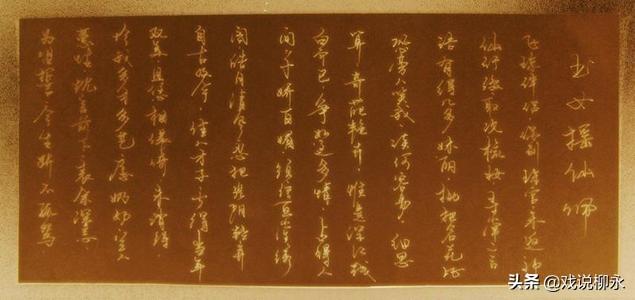 玉女摇仙佩
飞琼伴侣偶别珠宫未返神
仙行缀取次梳妆寻常言
语有得几多姝丽拟把名花比
恐旁人笑我谈何容易细思
算奇葩艳卉惟是深红浅
白而已争如这多情占得人
间千娇百媚须信画堂绣
阁皓月清风忍把光阴轻弃
自古及今佳人才子少得当年
双美且恁相偎倚未消得
怜我多才多艺愿奶奶兰心
蕙性枕前言下表余深意
为盟誓今生断不孤鸳
头条 @戏说柳永